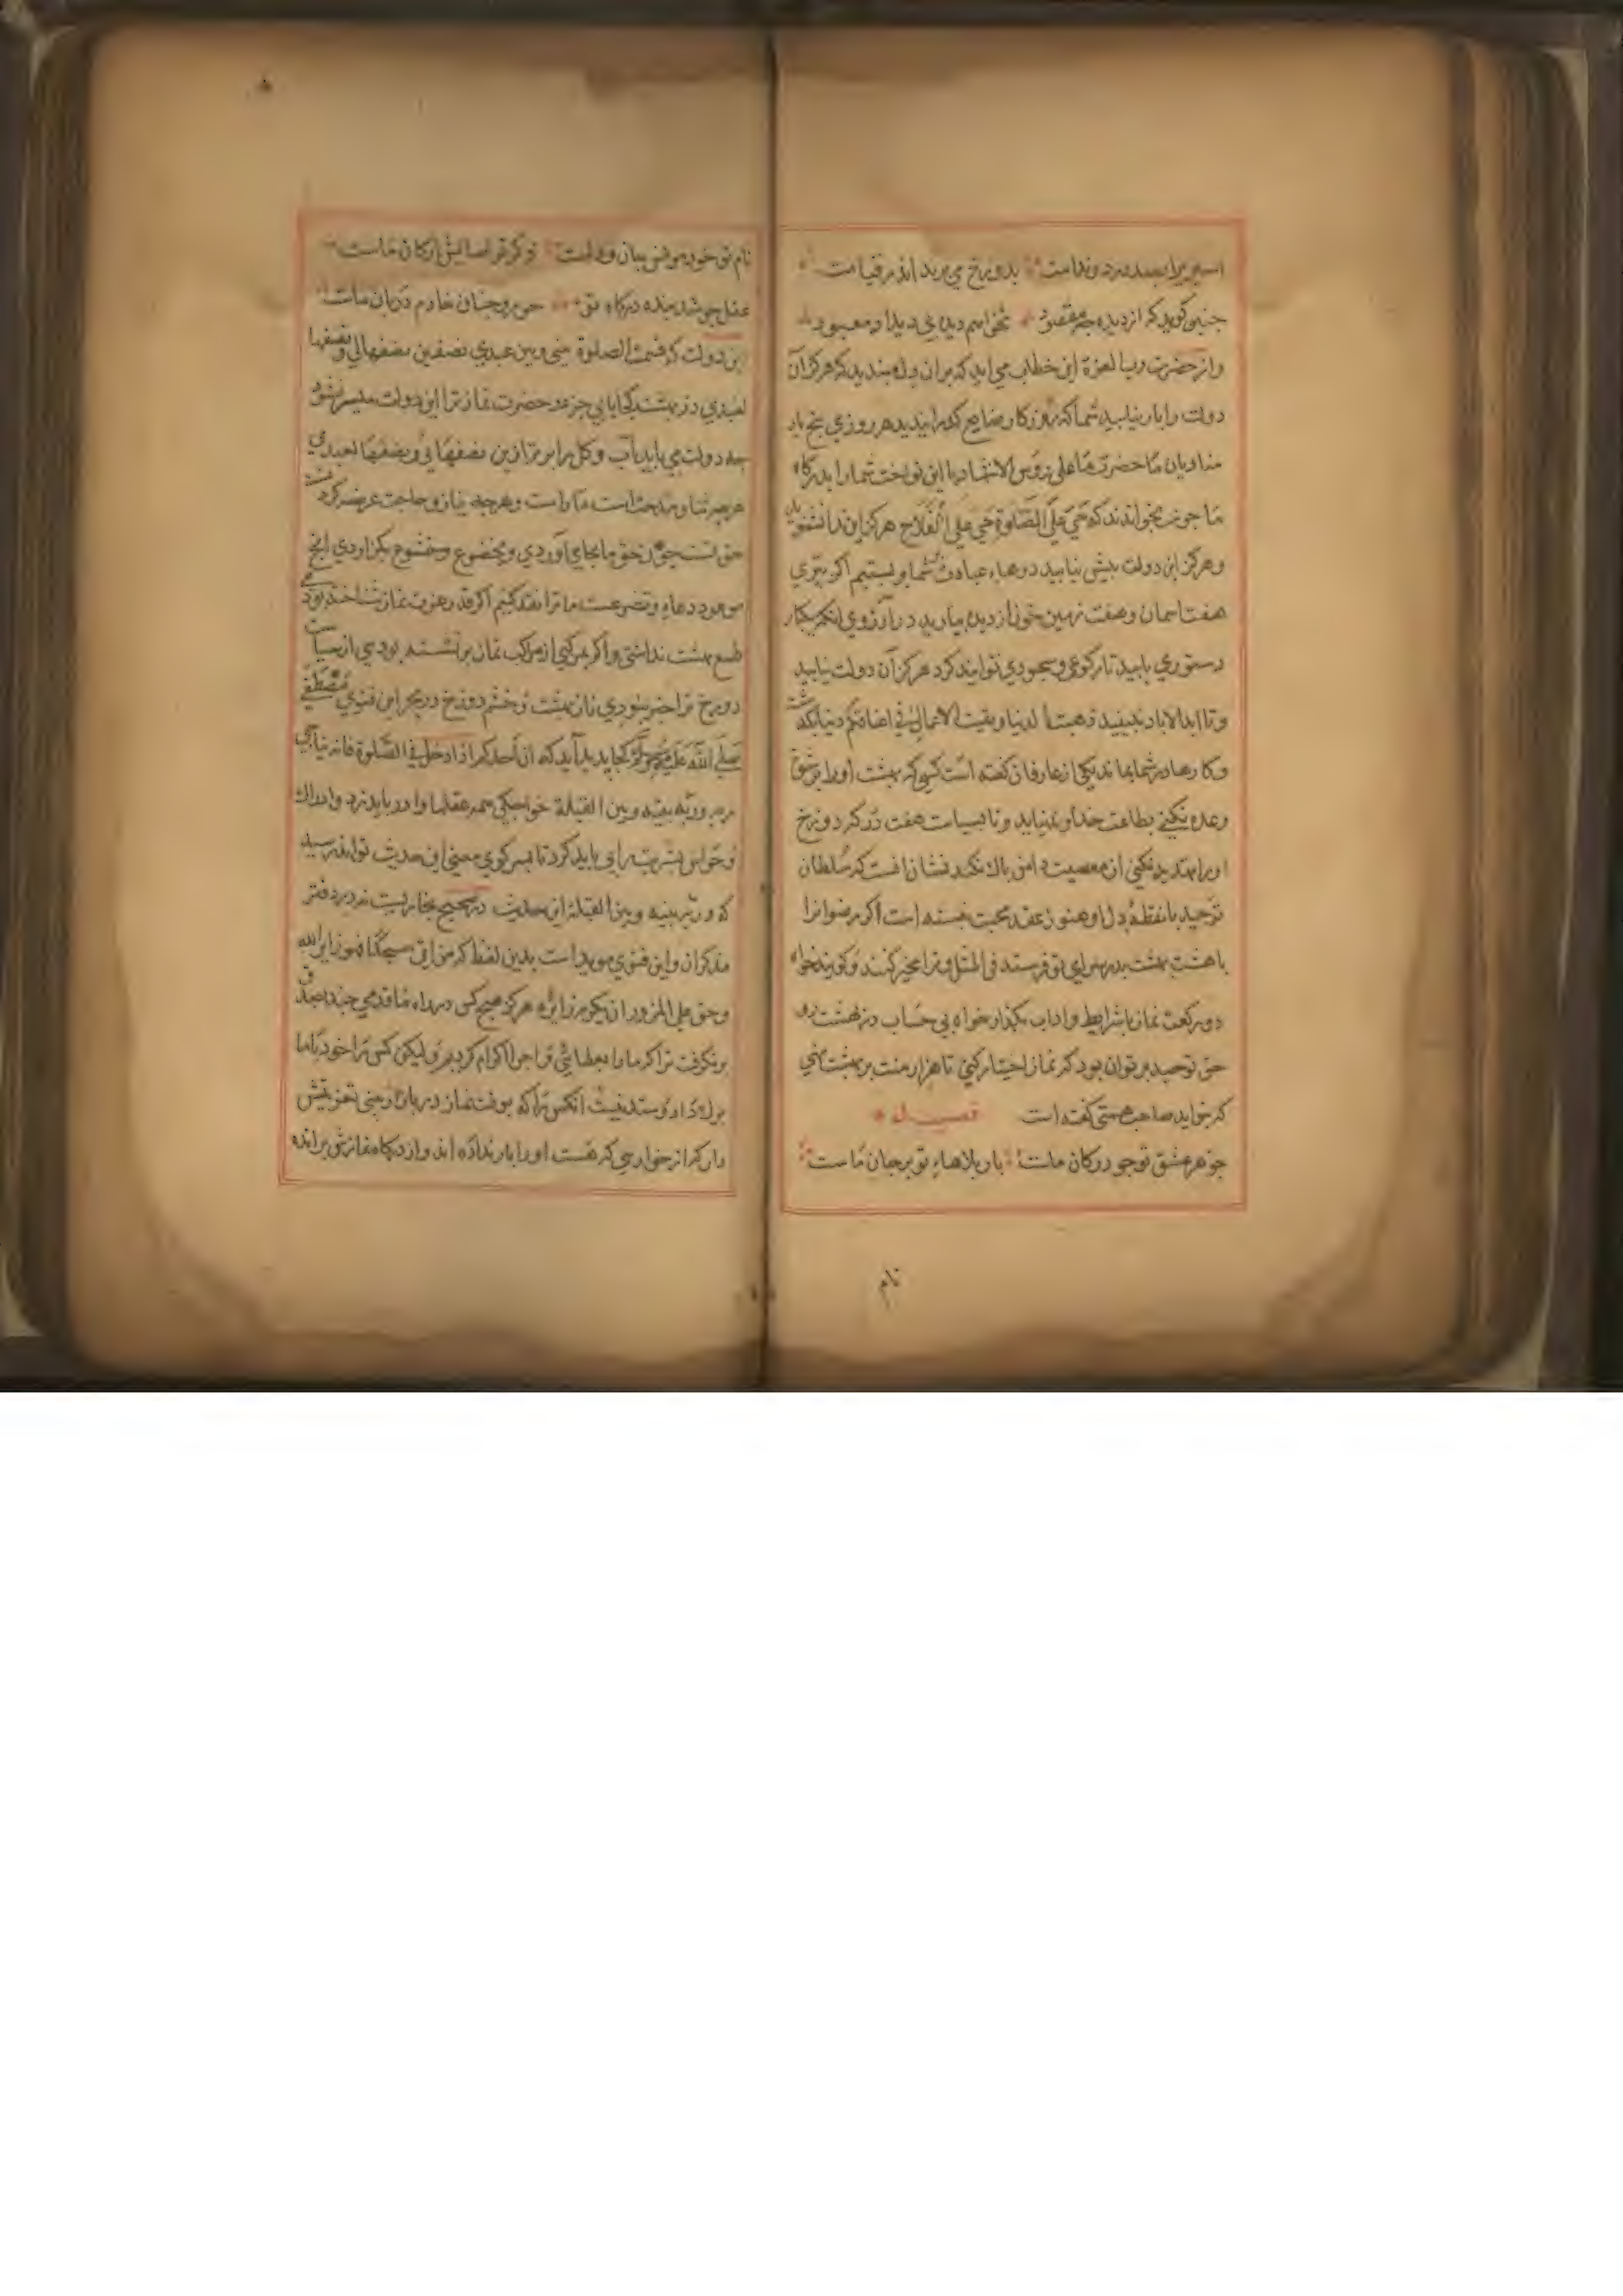 اسیر را بصد درد وندامت بدوزخ می برند اندر قیامت
جنین کوید که از دیده جه مقصود نخواهم دید بی دیدار معبود
واز حضرت رب العزة این خطاب می اید که بران وله مبندید که هرکز آن
دولت را باز نیابید شما که روزکار ضایع کردانیدید هر روزی بنج بار
منادیان ما حضرت ما علی روس الاشهاد با این نواخت شما را بدرکاه
ما جون بخواندند که حی علی الصلوة حی علی الفلاح هرکز این ندا نشنوید
وهرکز این دولت بیش نیابید دوهاء عبادت شما وبستیم اکر بتری
هفت اسمان وهفت زمین خون از دیده ببارید در آرزوی انکه یکبار
دستوری یابید تا رکوعی وسجودی توانید کرد هرکز آن دولت نیابید
وتا ابد الاباد ذهبت الدنیا وبقیت الاعمال فی اعناقکم دنیا بکذشت
وکارها بر شما بماند یکی از عارفان کفته است کسی که بهشت اورا بر شوق
وعده نکنی بطاعت خداوند نیاید وتا بسیاست هفت درکه دوزخ
اورا تهدید نکنی از معصیت دامن باک نکند نشان انست که سلطان
توحید با نقطه دل او هنوز عقد محبت نبسته است اکر رضوانرا
با هشت بهشت بدر سرای تو فرستد فی المثل وترا مخیر کنند وکویند خواه
دو رکعت نماز با شرایط واداب بکذار خواه بی حساب در بهشت رو
حق توحید بر تو ان بود که نماز اختیار کنی تا هزار منت بر بهشت نهی
که خواید صاحب همتی کفته است
جوهر عشق تو جو در کان ماست بار بلاهاء تو بر جان ماست
نام
نام تو خود مونس بیان ودلست ذکر تو اسایش ارکان ماست
عقل جو شد بنده درکاه تو حور وجنان خادم دربان ماست
این دولت که قسمت الصلوة بینی وبین عبدی نصفین نصفها لی ونصفها
لعبدی در بهشت کجا یابی جز در حضرت نماز ترا این دولت میسر نشود
جه دولت می باید آب وکل را برتر ازین نصفها لی ونصفها لعبدی
هرجه ثنا ومدحت است ماراست وهرجه نیاز وحاجت عرضه کردنست
حق تست جون حق ما بجای آوردی وبخضوع وخشوع بکزاردی انچ
موعود دعاء وتضرعست ما ترا نقد کنیم اکر قدر وعزت نماز شناخته بودی
طمع بهشت نداشتی واکر بمرکبی از مراکب نماز بر نشسته بودی از سیاست
دوزخ ترا خبر نبودی ناز بهشت وخشم دوزخ در بحر این فتوی مصطفی
صلی الله علیه وسلم کجا بدید آید که ان احدکم اذا دخل فی الصلوة فانه یناجی
ربه وربه بینه وبین القبلة خواجکی همه عقلها وا در باید نرد وادراک
وحواس بشریت را بی باید کرد تا بسر کوی معنی این حدیث تواند رسید
که وربه بینه وبین القبلة این حدیث در صحیح بخاریست نه در دفتر
مذکران واین فتوی موید است بدین لفظ که من اتی مسجدا فهو زایر الله
وحق علی المزور ان یکرم زایره هرکز هیچ کس در راه ما قدمی جند بصدق
برنکرفت تا که ما را بعطایی تو اجرا اکرام کردیم ولیکن کس ترا خود با ما
برک داد وستد نیست انکس را که بوقت نماز در بارکاه
دان که از خواریی که هست اورا بار نداده اند واز درکاه نمازش برانده